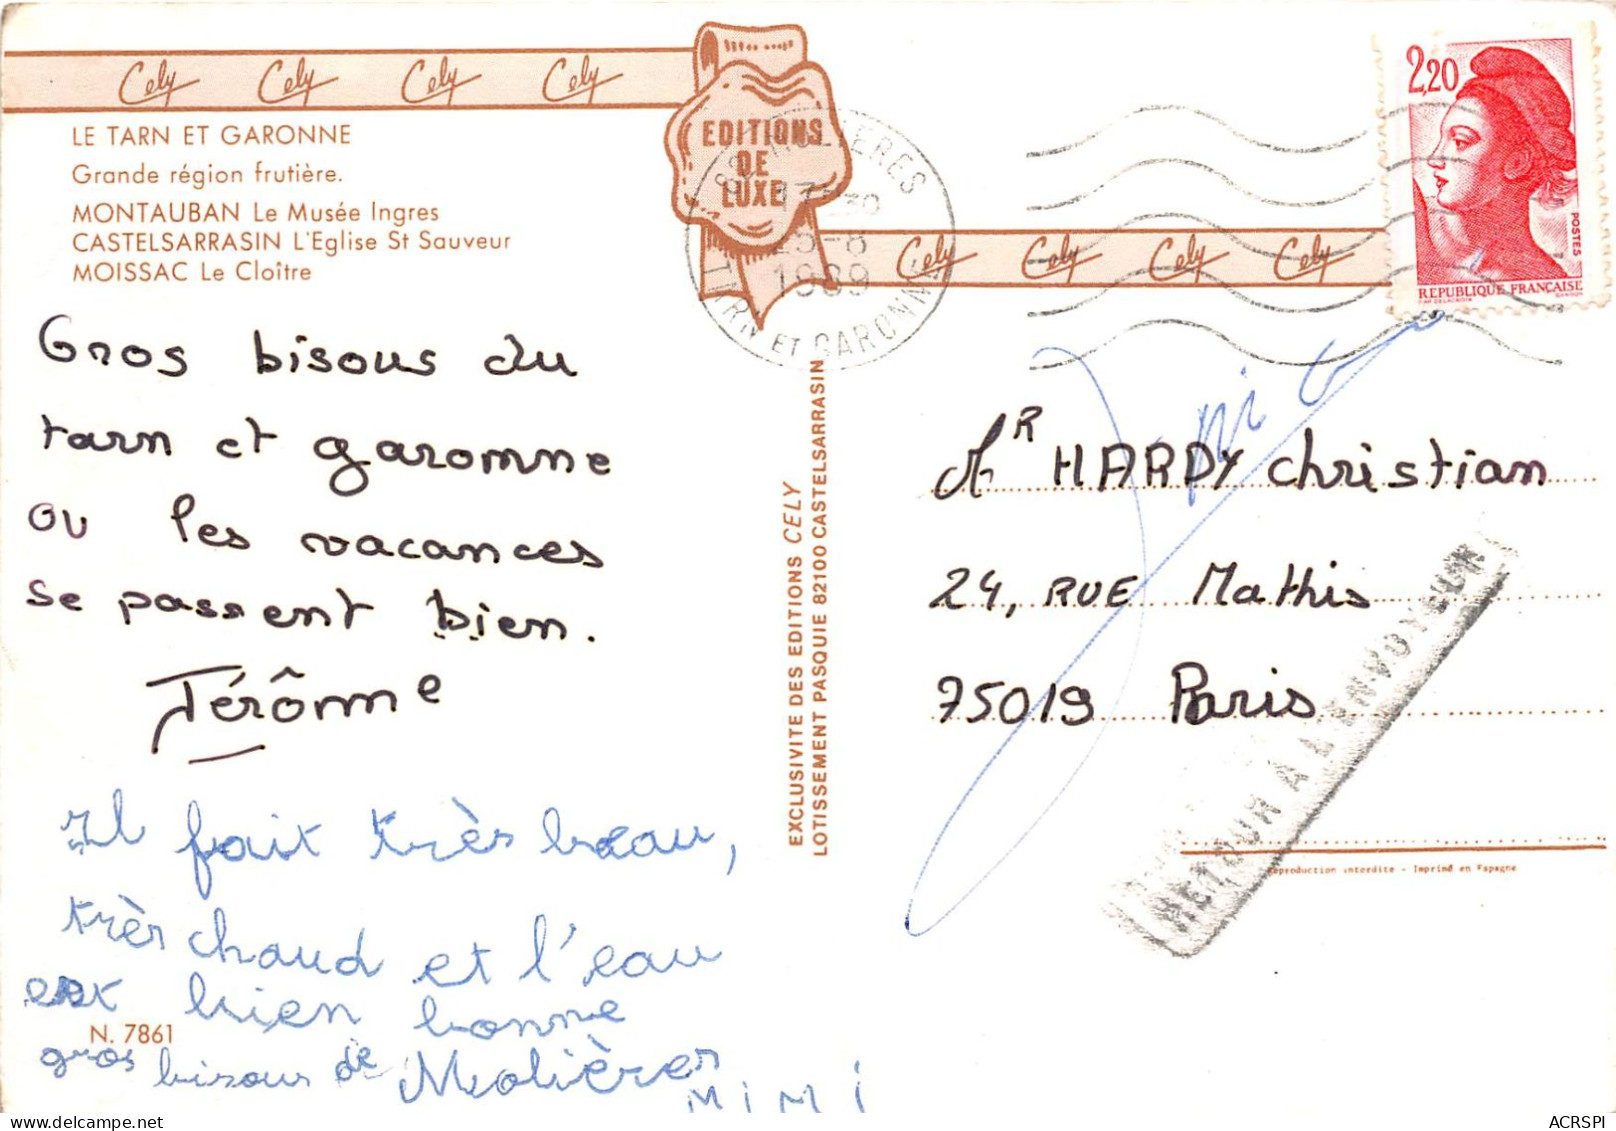 Cely Cely Cely Cely
LE TARN ET GARONNE
Grande région frutière.
MONTAUBAN Le Musée Ingres
CASTELSARRASIN L'Eglise St Sauveur
MOISSAC Le Cloître
EDITIONS
DE
LUXE
17-30
25-8
1989
TARN ET GARONNE
Cely Cely Cely Cely
2,20
POSTES
REPUBLIQUE FRANÇAISE
Gros bisous du
tarn et garomne
ou les vacances
se passent bien.
Jérôme
Il fait très beau,
très chaud et l'eau
est bien bonne
gros bisous de Molières
MIMI
N. 7861
EXCLUSIVITE DES EDITIONS CELY
LOTISSEMENT PASQUIE 82100 CASTELSARRASIN
Mr HARDY Christian
24, RUE Mathis
75019 Paris
RETOUR A L'ENVOYEUR
Reproduction interdite - Imprimé en Espagne
ACRSPI